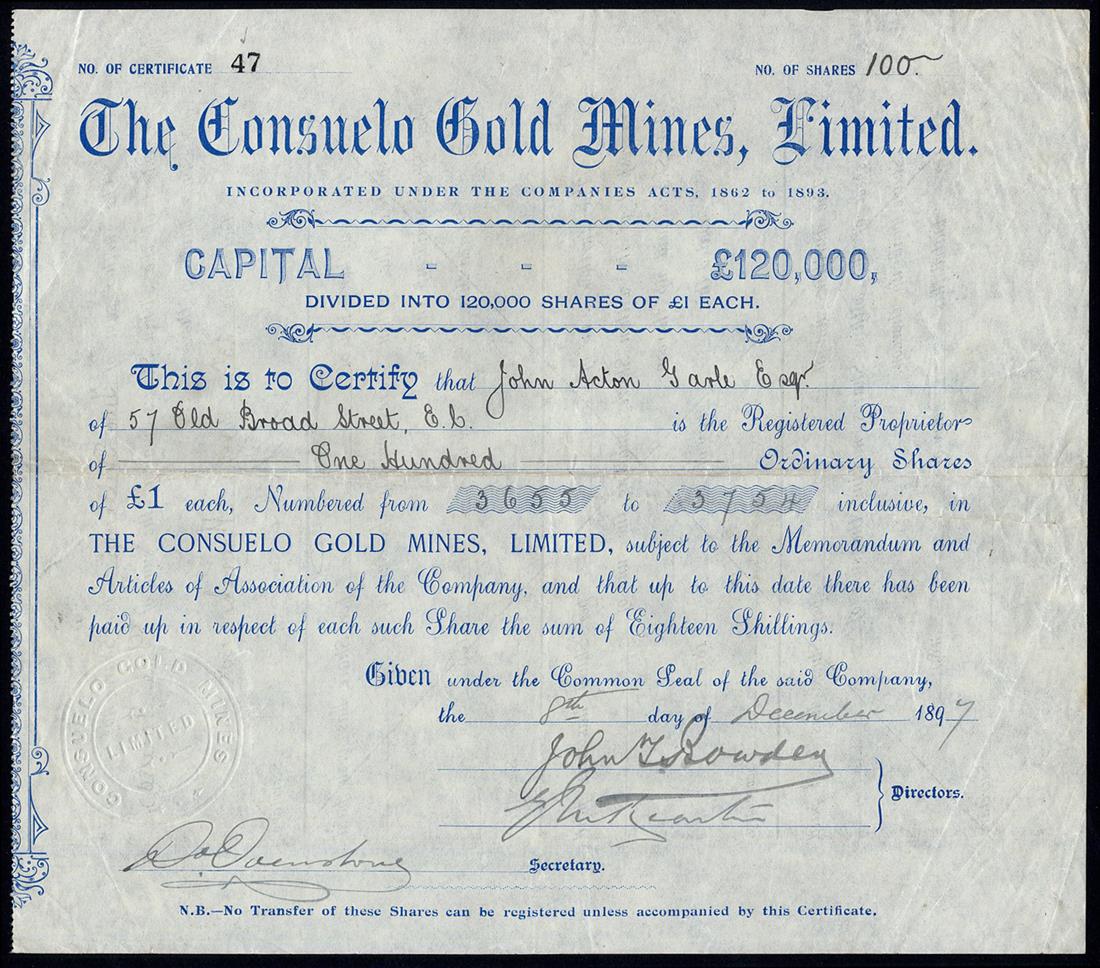 NO. OF CERTIFICATE 47
NO. OF SHARES 100.
The Consuelo Gold Mines, Limited.
INCORPORATED UNDER THE COMPANIES ACTS, 1862 to 1893.
CAPITAL - - - £120,000,
DIVIDED INTO 120,000 SHARES OF £1 EACH.
This is to Certify that John Acton Garle Esqr.
of 57 Old Broad Street, E.C. is the Registered Proprietor
of One Hundred Ordinary Shares
of £1 each, Numbered from 3655 to 3754 inclusive, in
THE CONSUELO GOLD MINES, LIMITED, subject to the Memorandum and
Articles of Association of the Company, and that up to this date there has been
paid up in respect of each such Share the sum of Eighteen Shillings.
CONSUELO GOLD MINES
LIMITED
Given under the Common Seal of the said Company,
the 8th day of December 1897
John Bowden
Directors.
Secretary.
N.B.—No Transfer of these Shares can be registered unless accompanied by this Certificate.